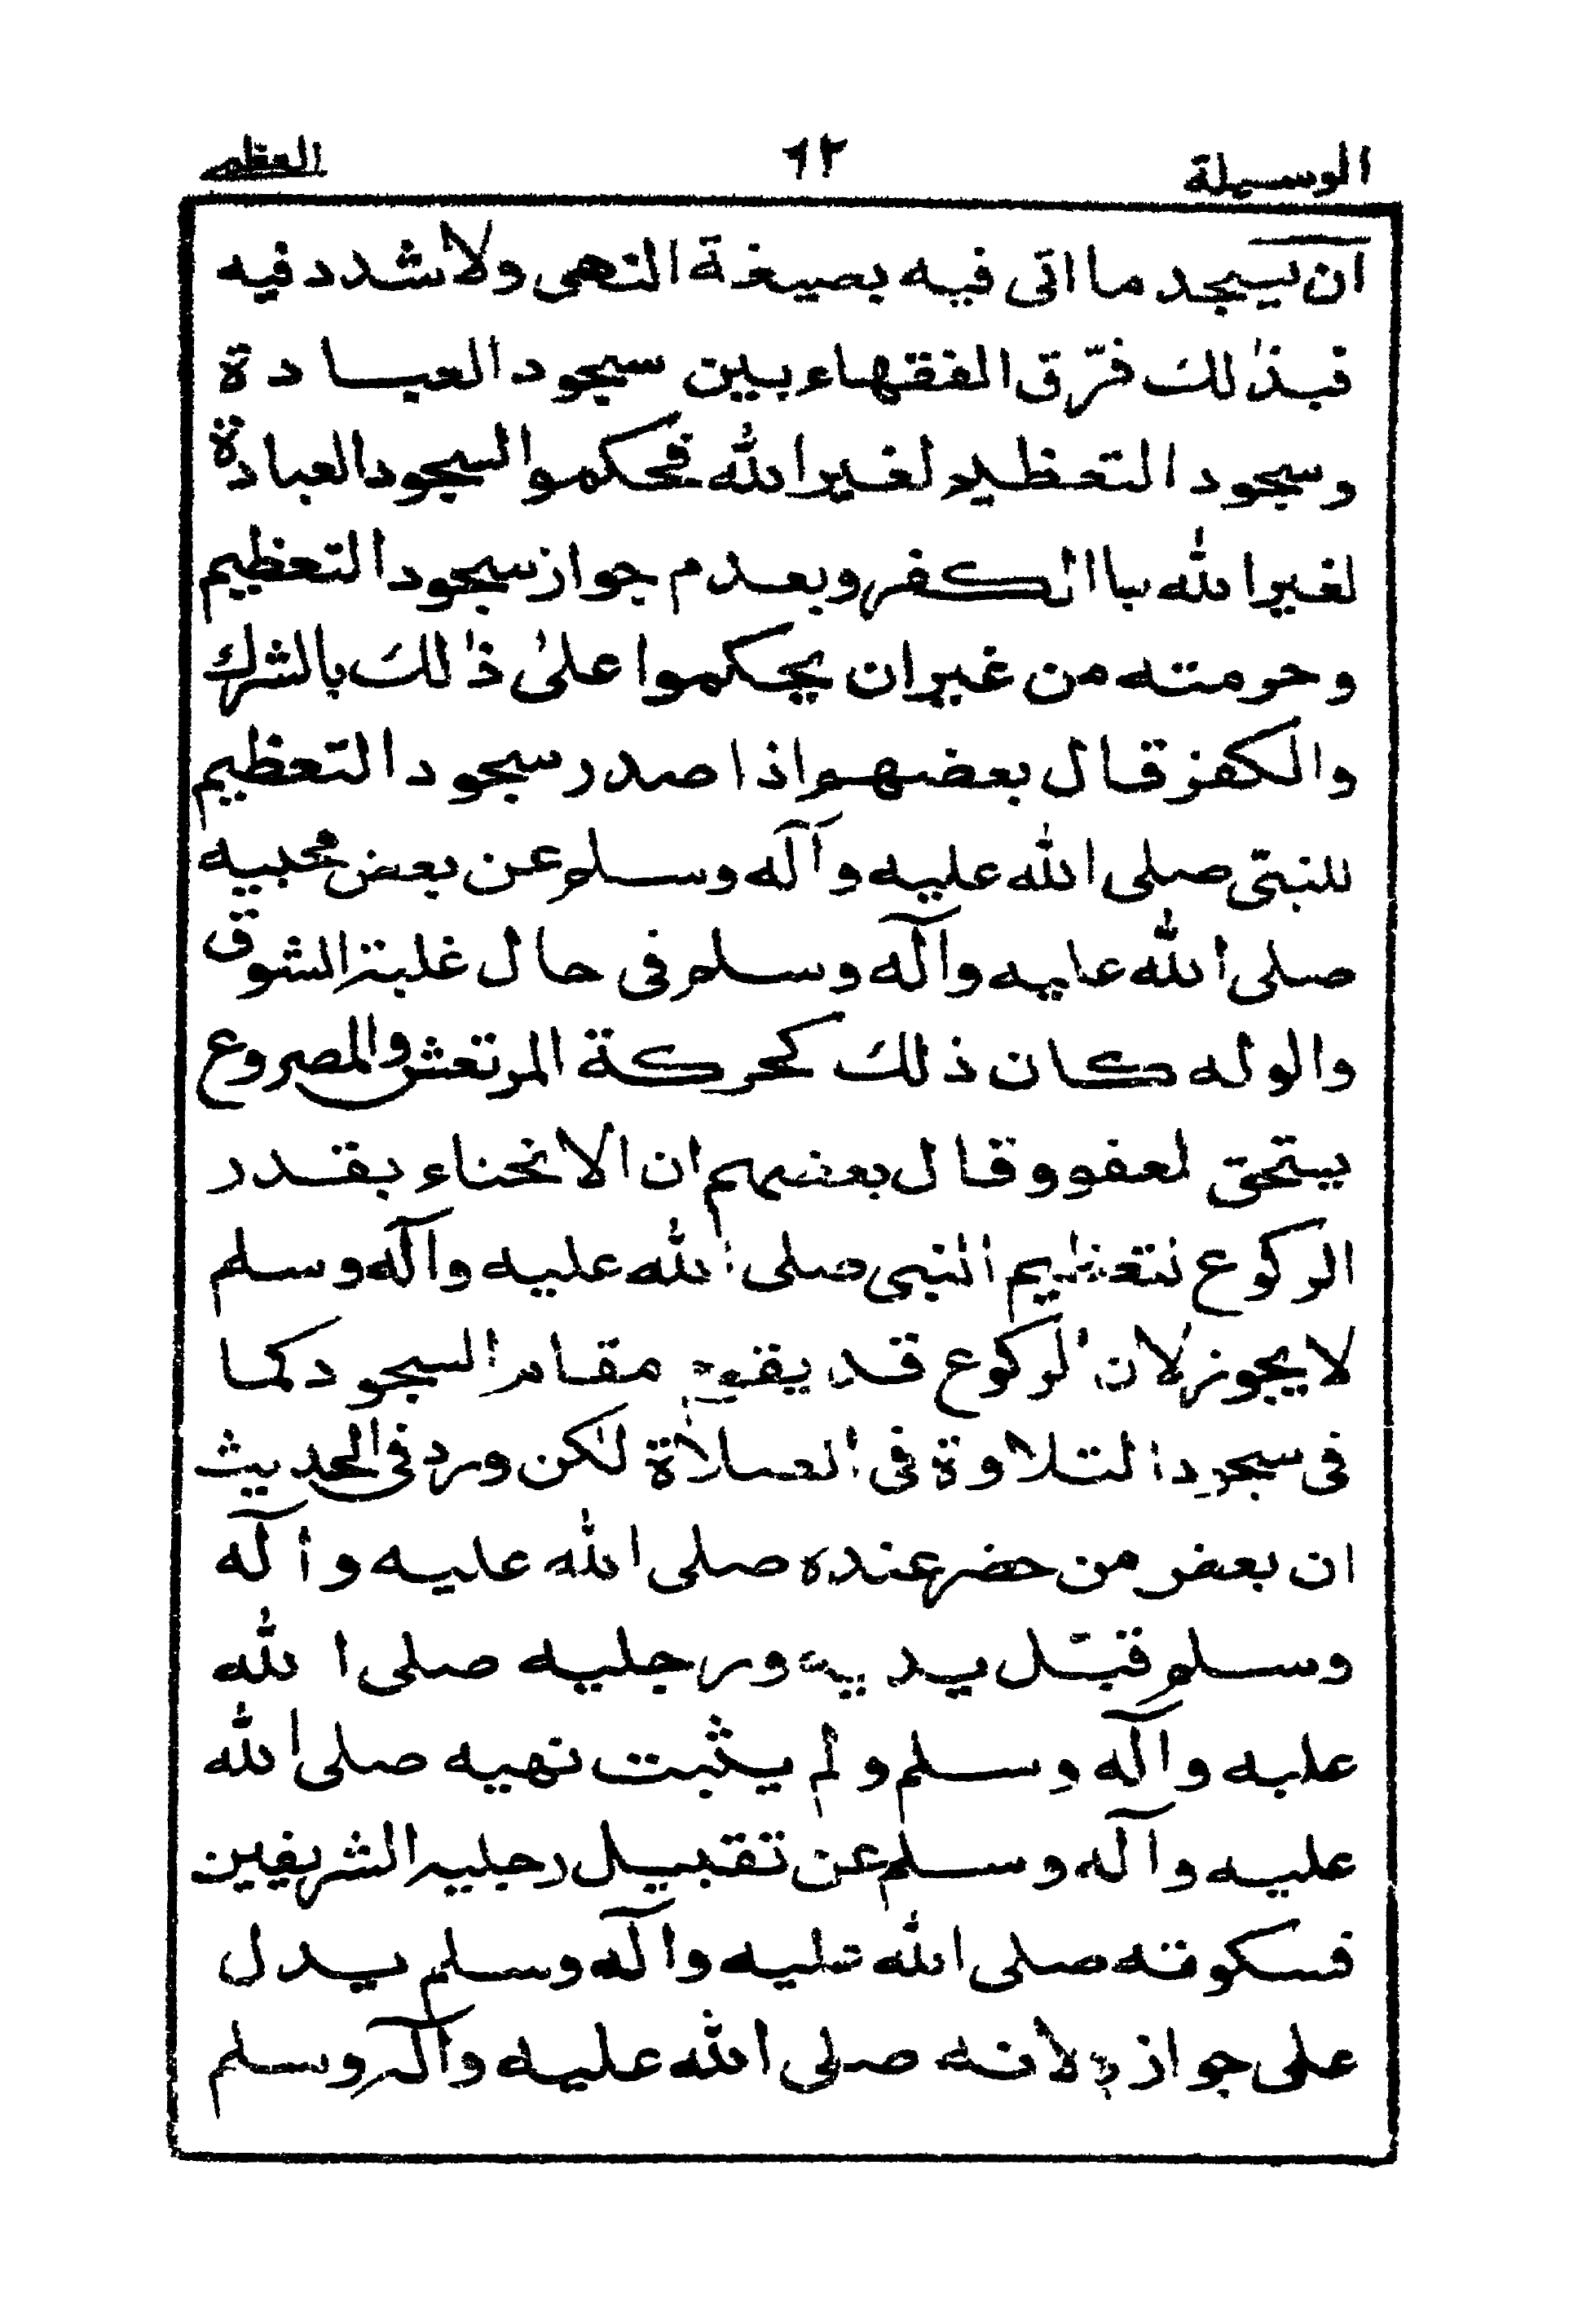 الوسيلة ٦٢ العظمى
ان يسجد ما اتى فيه بصيغة النهى ولا شدد فيه
فبذٰلك فرّق الفقهاء بين سجود العبادة
وسجود التعظيم لغير الله فحكموا السجود العبادة
لغير الله باالكفر وبعدم جواز سجود التعظيم
وحرمته من غير ان يحكموا علىٰ ذٰلك بالشرك
والكفر قال بعضهم اذا صدر سجود التعظيم
للنبى صلى الله عليه وآله وسلم عن بعض محبيه
صلى الله عليه وآله وسلم فى حال غلبة الشوق
والوله كان ذلك كحركة المرتعش والمصروع
يستحق لعفو وقال بعضهم ان الانحناء بقدر
الركوع لتعظيم النبى صلى الله عليه وآله وسلم
لا يجوز لان الركوع قد يقوم مقام السجود كما
فى سجود التلاوة فى الصلاة لٰكن ورد فى الحديث
ان بعض من حضر عنده صلى الله عليه وآله
وسلم قبّل يديه ورجليه صلى الله
عليه وآله وسلم ولم يثبت نهيه صلى الله
عليه وآله وسلم عن تقبيل رجليه الشريفين
فسكوته صلى الله عليه وآله وسلم يدل
على جوازه لانه صلى الله عليه وآله وسلم